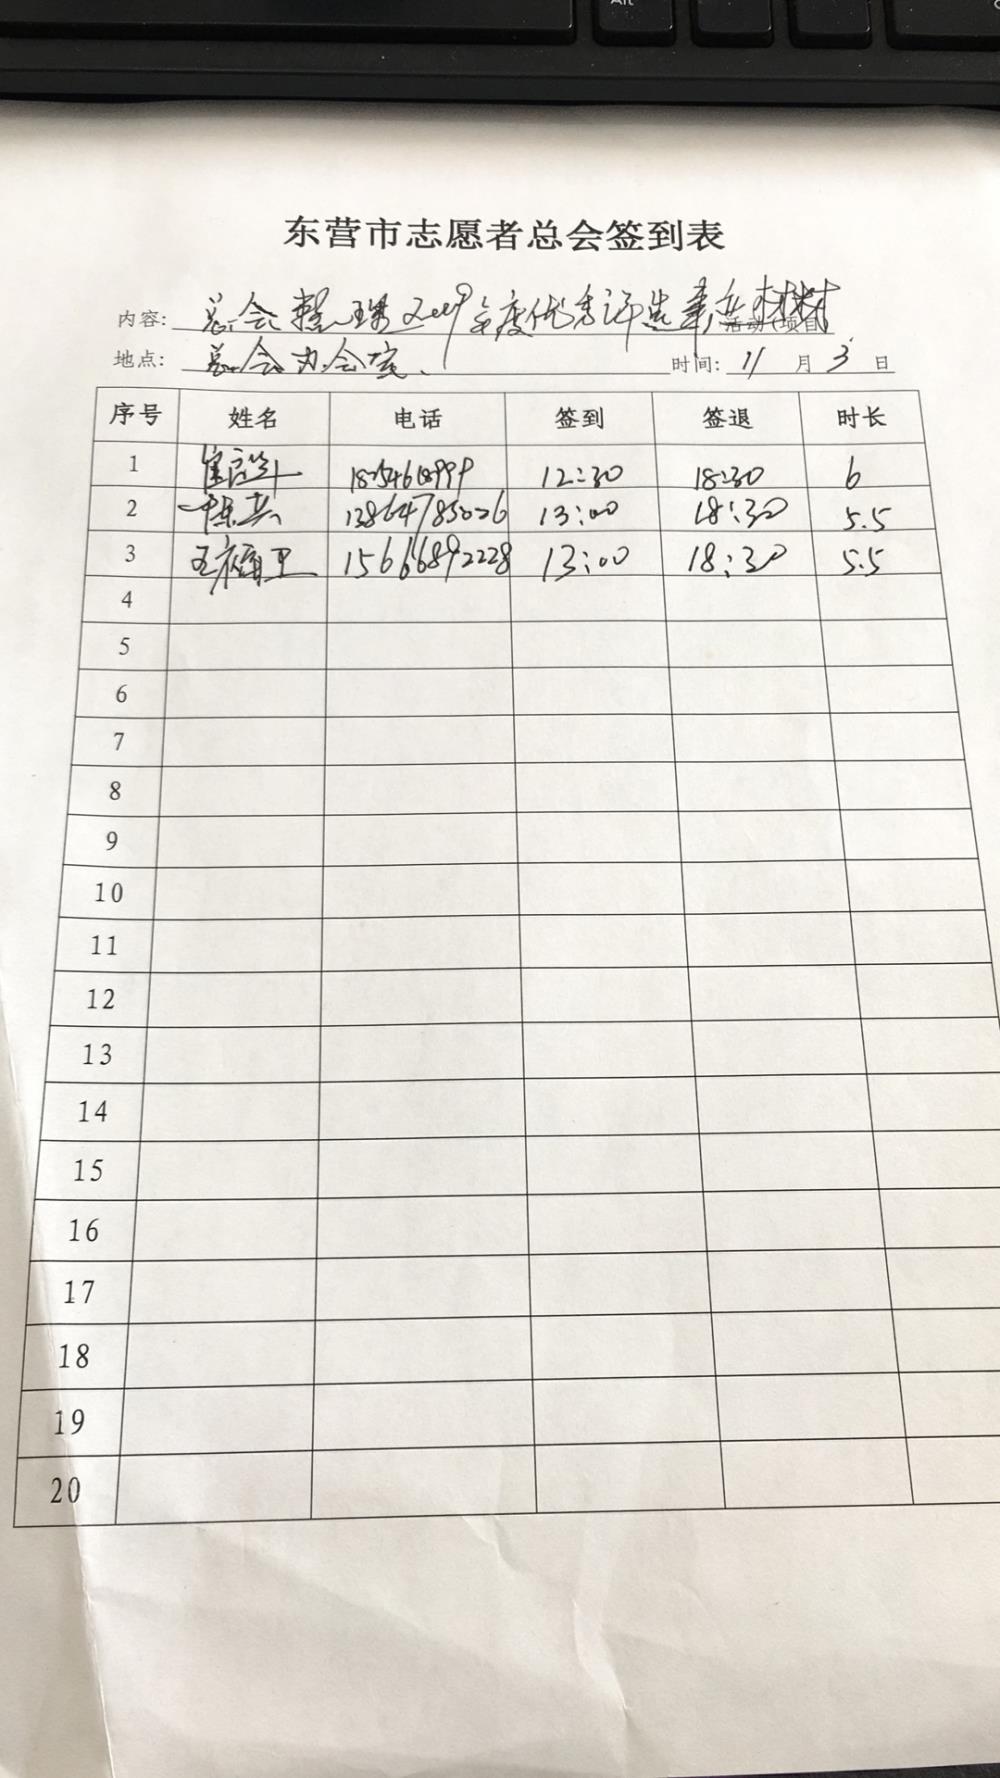 Alt
东营市志愿者总会签到表
内容: 总会整理2019年度优秀评选事业材料 活动(项目)
地点: 总会办会室 时间: 11 月 3 日
序号 姓名 电话 签到 签退 时长
1 12:30 18:30 6
2 陈其 13864785026 13:00 18:30 5.5
3 王福卫 15666892228 13:00 18:30 5.5
4
5
6
7
8
9
10
11
12
13
14
15
16
17
18
19
20